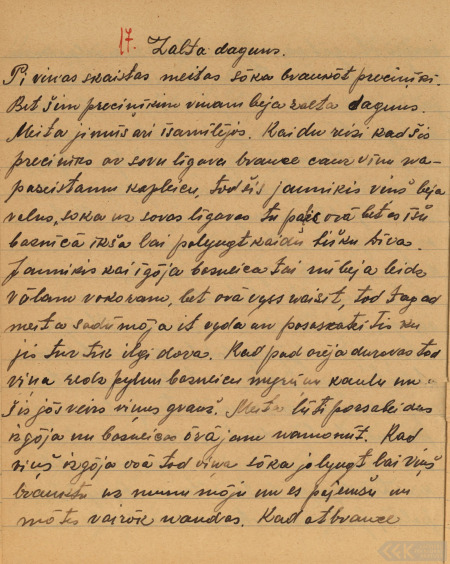 17. Zalta daguns.
Pi vinas skaistas meitas sōka braukōt precinīki.
Bet šim precinīkim vinam beja zalta daguns.
Meita jimīšari īsamīlējōs. Kaidu reizi kad šis
precinīks ar sovu līgavu brauce caur vinu na-
pazeistamu kapleicu, tod šis jaunikis viņš beja
valns, soka uz sovas līgavas tu palic ōvā bet es īšu
baznīcā īkšā lai palyugt kaidu lišku Diva.
Jaunikis kai īgōja bazneica tai mi beja leidz
vālam vokoram, bet ōvā vyss naisit, tod tagad
meita sadūmōja īt vyda un pasaskatit šis ku
jis tur tik ilgi dora. Kad pad ōrēja durovas tod
viņa redz pylnu bazneicu myrūņu kaulu un
šis jōs veirs viņus grauž. Meita ļūti porsabeidus
izgōja nu bazneicas ōvā jau namonūt. Kad
viņš izgōja ōvā tod viņa sōka jō lyugt lai viņš
brauktu uz munu mōju un es pejemšu nu
mōtes vairōk naudas. Kad atbrauce